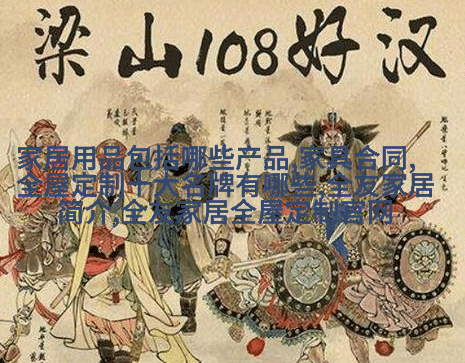 梁山108好汉
家居用品包括哪些产品,家具合同,
全屋定制十大名牌有哪些,全友家居
简介,全友家居全屋定制官网